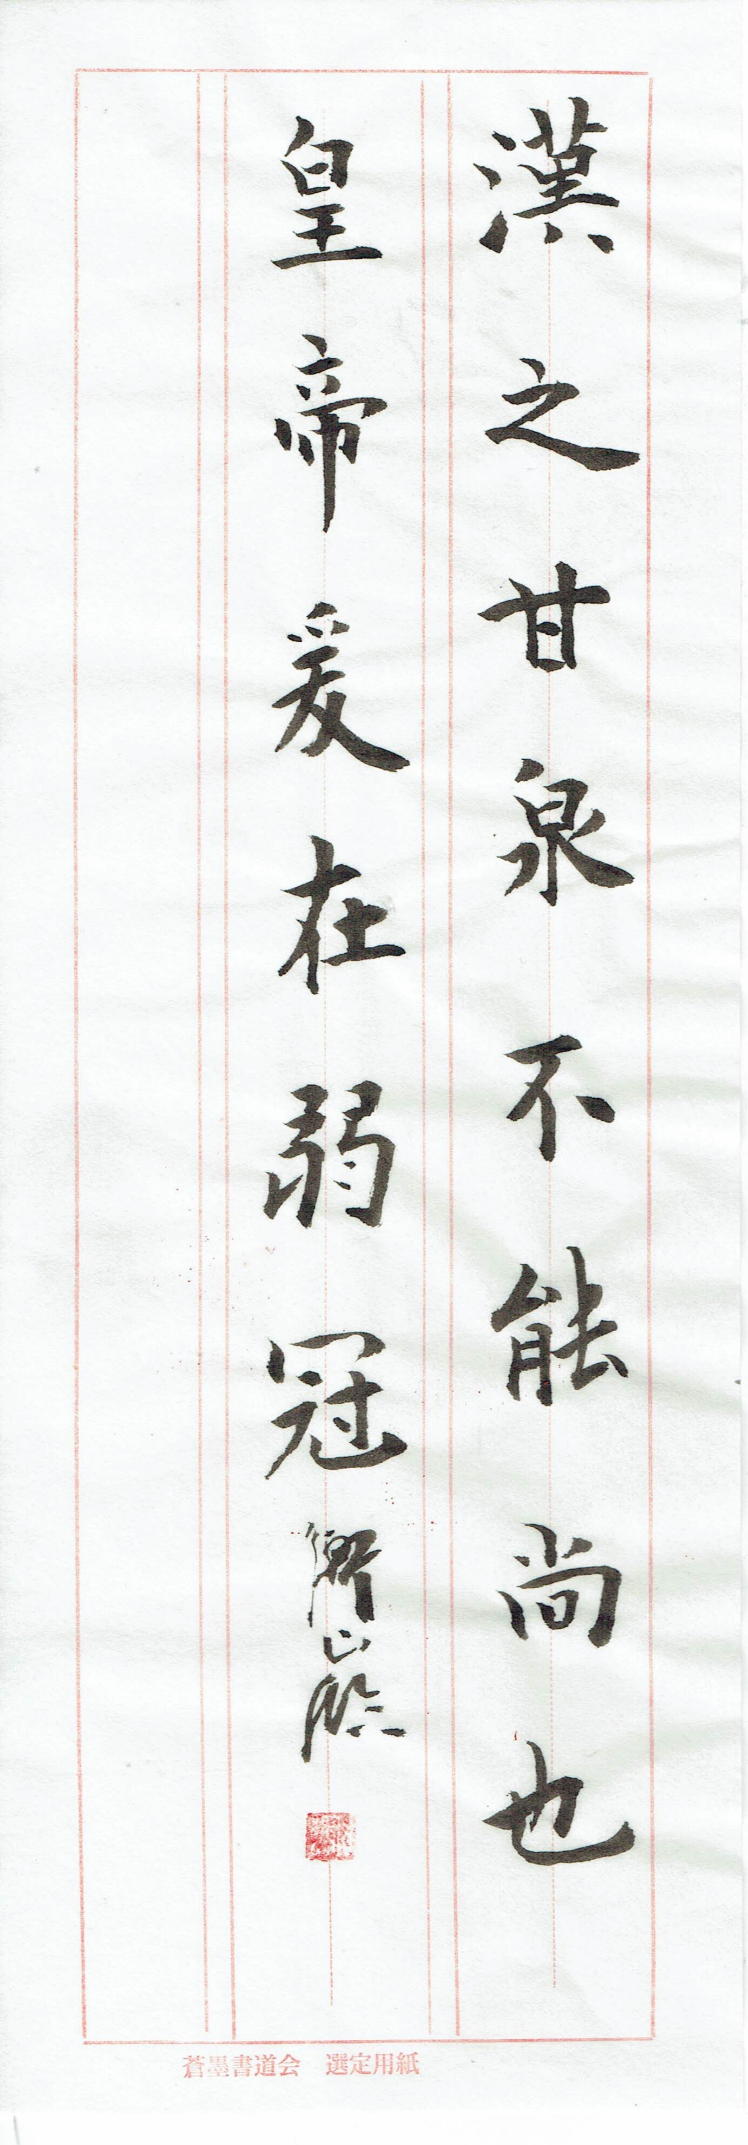 漢之甘泉不能尚也
皇帝爰在弱冠
蒼墨書道会 選定用紙